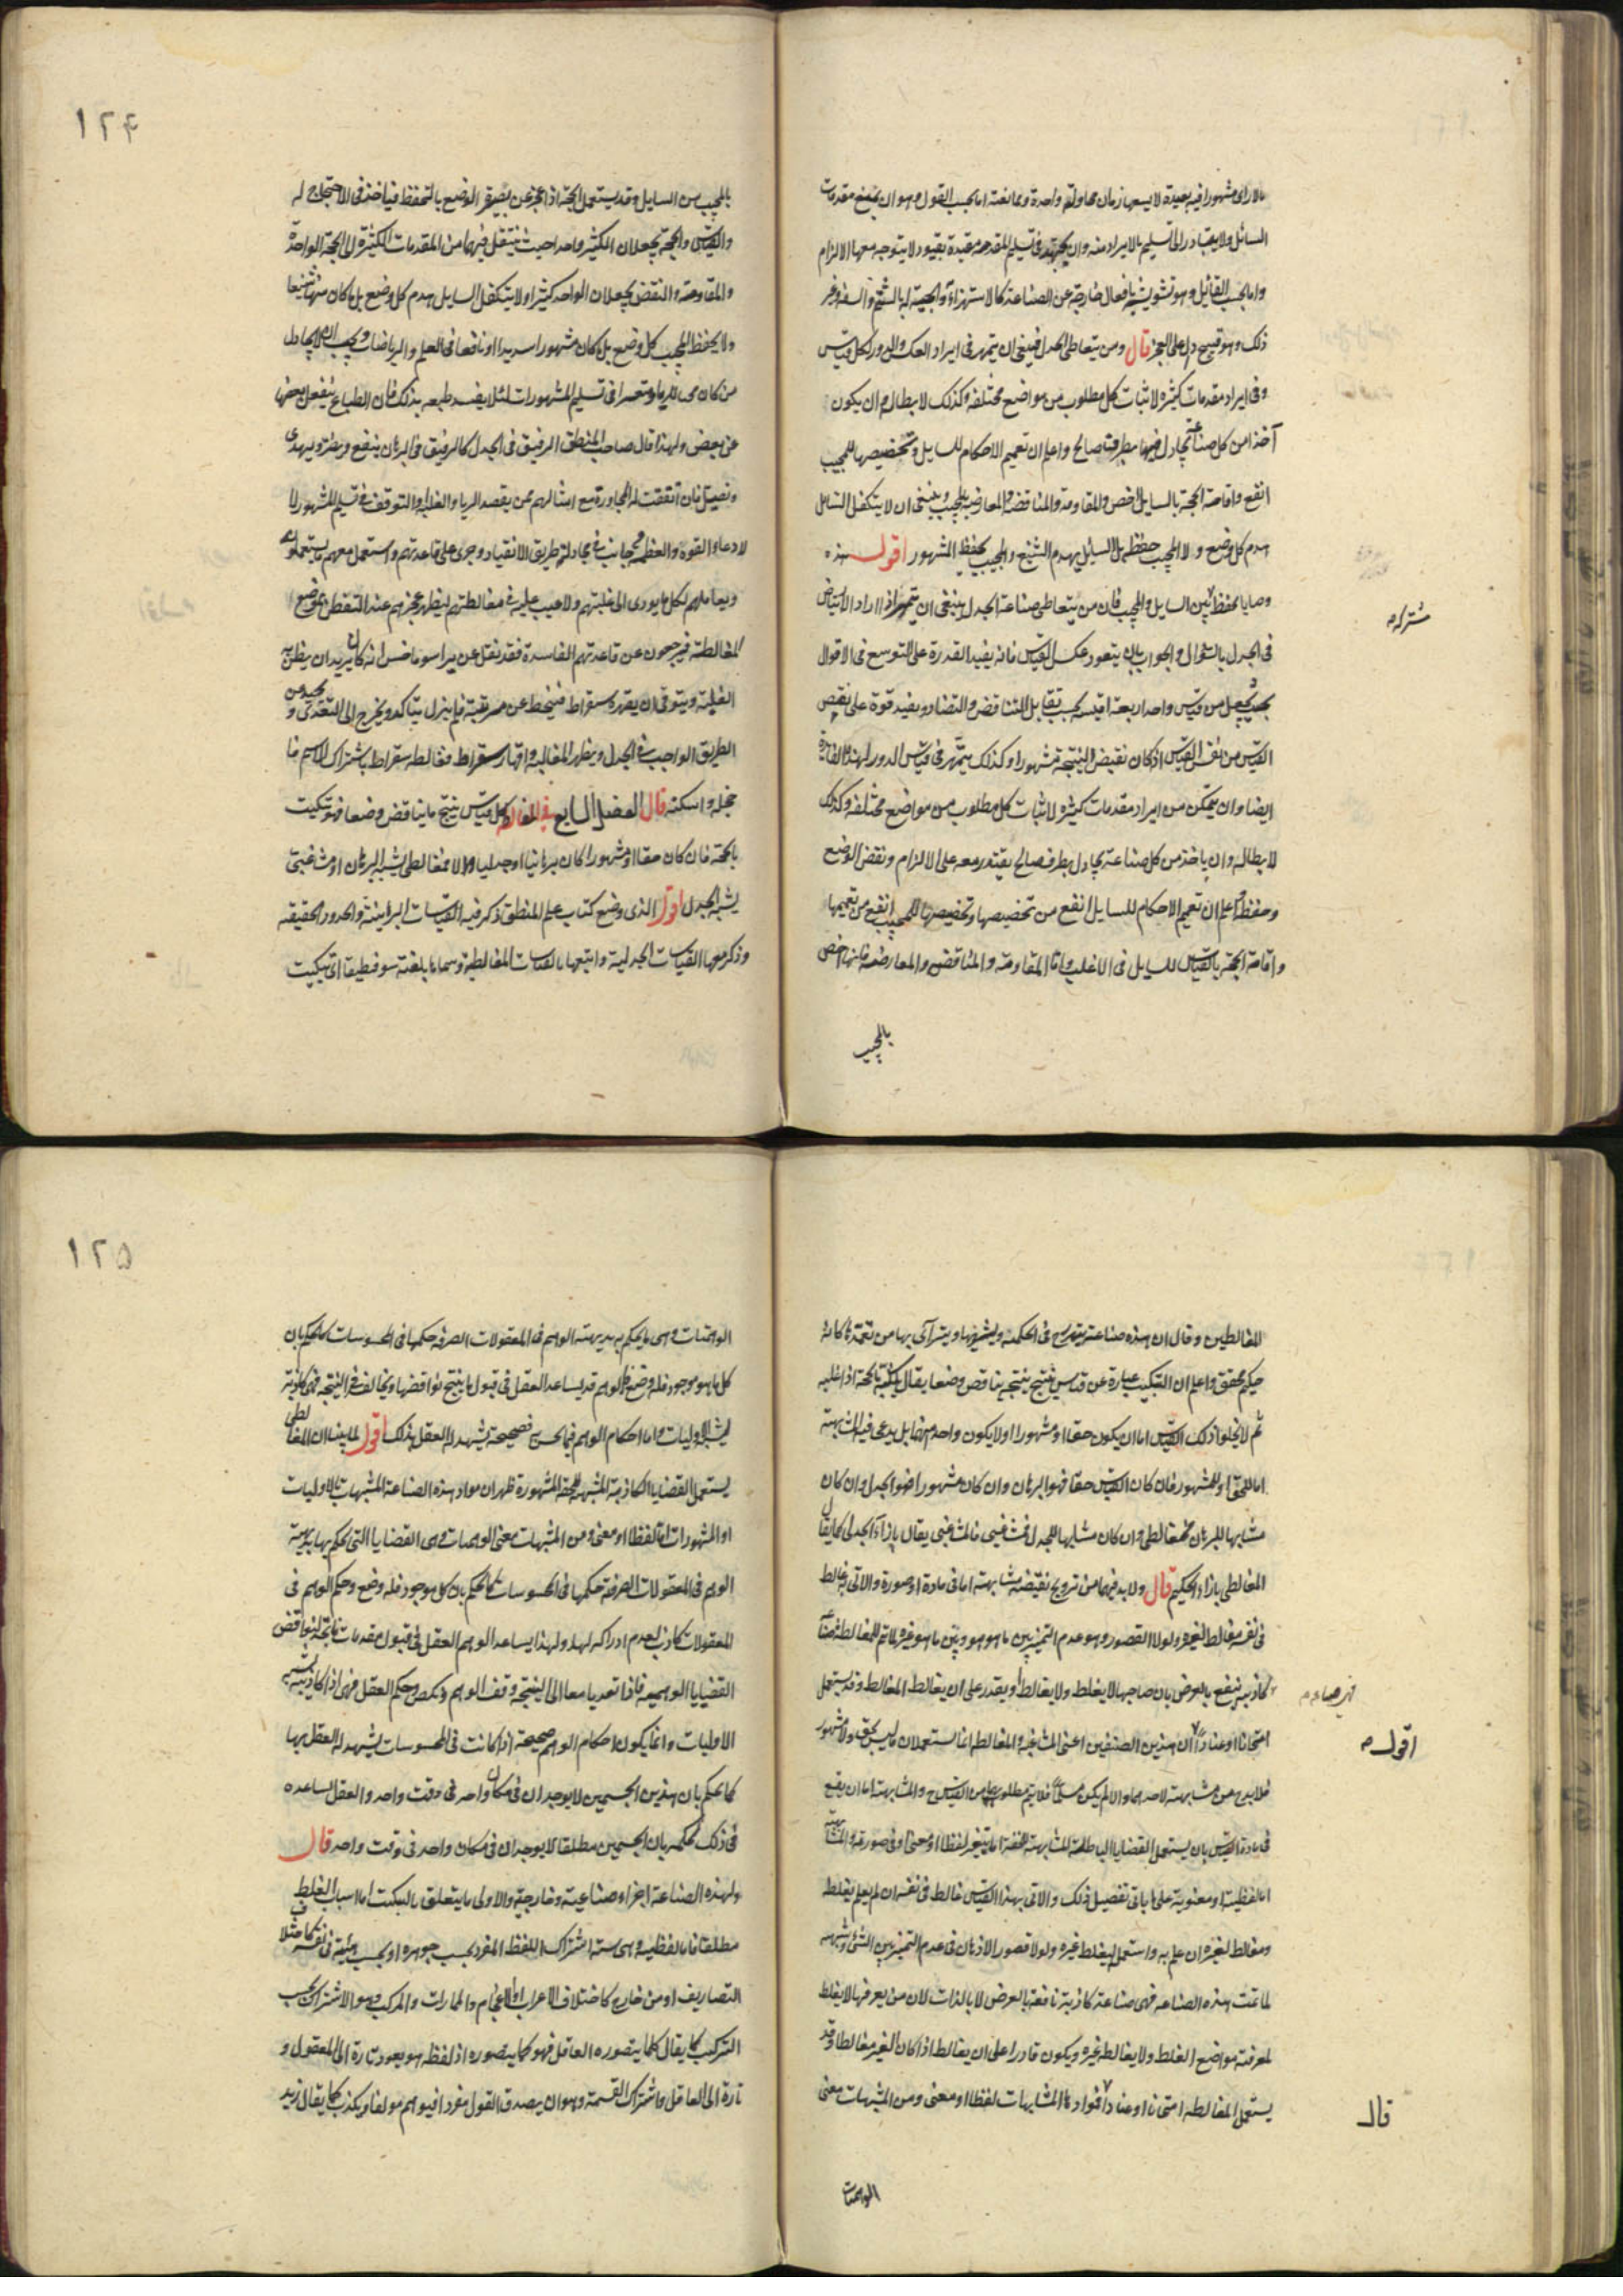 بالاراى مشهورا فيه بعيدة لا يسعها زمان محاولة واحدة وممانعته اما بحسب القول وهو ان يمنع مقدمات
السائل ولا يتبادر الى تسليم ما لا يراد منه وان يجتهد فى تسليم المقدمه مقيدة بقيود لا يتوجه معها الالزام
واما بحسب القائل وهو تشويشه بافعال خارجة عن الصناعة كالاستهزاء او الجبه له بالشتم والسفه وغير
ذلك وهو قبيح دل على العجز قال ومن يتعاطى الجدل فينبغى ان يتمهر فى ايراد العكس والدور لكل قياس
وفى ايراد مقدمات كثيرة لاثبات كل مطلوب من مواضع مختلفه وكذلك لابطاله وان يكون
آخذا من كل صناعة يجادل فيها بطرف صالح واعلم ان تعميم الاحكام للسايل وتخصيصها للمجيب
انفع واقامة الحجة بالسايل اخص والمقاومة والمناقضة والمعارضة بالمجيب وينبغى ان لا يتكفل السايل
هدم كل وضع ولا المجيب حفظه بل السايل يهدم الشنيع والمجيب يحفظ المشهور اقول هذه
وصايا يحفظ بين السايل والمجيب فان من يتعاطى صناعة الجدل ينبغى ان يتمهر اذا اراد الارتياض
مشتركه
فى الجدل بالسؤال والجواب بان يتعود عكس القياس فانه يفيد القدرة على التوسع فى الاقوال
بحيث يجعل من قياس واحد اربعة اقيسه بحسب تقابل التناقض والتضاد ويفيد قوة على نقض
القياس من نفس القياس اذ كان نقيض النتيجة مشهورا وكذلك يتمهر فى قياس الدور لهذه الفايدة
ايضا وان يتمكن من ايراد مقدمات كثيره لاثبات كل مطلوب من مواضع مختلفه وكذلك
لابطاله وان ياخذ من كل صناعة يجادل بطرف صالح يقتدر معه على الالزام ونقض الوضع
وحفظه واعلم ان تعميم الاحكام للسايل انفع من تخصيصها وتخصيصها للمجيب انفع من تعميمها
واقامة الحجة بالقياس للسايل فى الاغلب واما المقاومة والمناقض والمعارضه فانها اخص
بالمجيب
١٢٤
بالمجيب من السايل وقد يستعمل الحجة اذا عجز عن نصرة الوضع بالتحفظ فياخذ فى الاحتجاج له
والقياس والحجة يجعلان الكثير واحدا حيث ينتقل فيهما من المقدمات الكثيرة الى الحجة الواحدة
والمقاومة والنقض يجعلان الواحد كثيرا ولا يتكفل السايل هدم كل وضع بل ما كان منها شنيعا
ولا يحفظ المجيب كل وضع بل ما كان مشهورا سديدا او نافعا فى العلم والرياضات ويجب ان لا يجادل
من كان محبا للريا متعسرا فى تسليم المشهورات لئلا يفسد طبعه بذلك فان الطباع ينفعل بعضها
عن بعض ولهذا قال صاحب المنطق الرفيق فى الجدل كالرفيق فى البرهان ينفع ويضر ويهدى
ويضل فان اتفقت له المجاورة مع امثالهم ممن يقصد الريا والغلبة والتوقف فى تسليم المشهور لا
لادعاء القوة والعظمة جانب فى مجادلته طريق الانقياد وجرى على قاعدتهم واستعمل معهم ما يستعملونه
ويعاملهم لكل ما يودى الى غلبتهم ولا عيب عليه فى مغالطتهم ليظهر عجزهم عند التفطن لموضع
المغالطة فيرجعون عن قاعدتهم الفاسدة فقد نقل عن ثيراسوماخس انه كان يريد ان يظن به
الغلبة ويتوقى ان يقهره سقراط فينحط عن مرتبته فلم يزل يتاكد ويخرج الى التعدى ويحيد عن
الطريق الواجب فى الجدل ويظهر المغالبة واقهار سقراط فغالطه سقراط باشتراك الاسم فا
خجله واسكته قال الفصل السابع فى المغالطة كل قياس ينتج ما يناقض وضعا فهو تبكيت
بالحجة فان كان حقا او مشهورا كان برهانيا او جدليا والا فمغالطى يشبه البرهان او مشاغبى
يشبه الجدل اقول الذى وضع كتاب علم المنطق ذكر فيه القياسات البرهانية والحدود الحقيقيه
وذكر معها القياسات الجدلية واتبعها بالقياسات المغالطية وسماها بلغته سوفسطيقا اى تبكيت
المغالطين وقال ان هذه صناعة يتدرج فى الحكمة ويشرفها ويتراآى بها من تعمدها كانه
حكيم محقق واعلم ان التبكيت عبارة عن قياس منتج ينتجه يناقض وضعا يقال بكته بالحجة اذا غلبه
ثم لا يخلو ذلك القياس اما ان يكون حقا او مشهورا او لا يكون واحدا منهما بل يدعى فيه المشابهة
اما للحق او للمشهور فان كان القياس حقا فهو البرهان وان كان مشهورا فهو الجدل وان كان
مشابها للبرهان فمغالطى وان كان مشابها للجدل فمشاغبى فالمشاغبى يقال بازاء الجدلى كما يقال
المغالطى بازاء الحكيم قال ولا بد فيهما من ترويج نقيضه مشابهته اما فى مادة او صورة والاتى به غالط
فى نفسه مغالط لغيره ولولا القصور وهو عدم التميز بين ما هو هو وبين ما هو غيره لما تم للمغالطة صناعة
كاذبة ينفع بالعرض بان صاحبها لا يغلط ولا يغالط ويقدر على ان يغالط المغالط وقد يستعمل
فهى صناعه
امتحانا او عنادا ان هذين الصنفين اعنى المشاغبة والمغالطه انما يستعملان ما ليس بحق ولا مشهور
اقول
فلا بد من مشابهته لاحدهما والا لم يكن مسلما فلا يتم مطلوبهما من القياس ح والمشابهة اما ان يقع
فى مادة القياس بان يستعمل القضايا الباطلة المشابهة للحقه اما بتغير لفظا او معنى او فى صورته والمشابهة
اما لفظية او معنوية على ما ياتى تفصيل ذلك والاتى بهذا القياس غالط فى نفسه ان لم يعلم بغلطه
ومغالط لغيره ان علم به واستعمله ليغلط غيره ولولا قصور الاذهان فى عدم التميز بين الشئ وشبهه
لما تمت هذه الصناعه فهى صناعة كاذبة نافعة بالعرض لا بالذات لان من يعرفها لا يغلط
لمعرفته مواضع الغلط ولا يغالطه غيره ويكون قادرا على ان يغالط اذا كان الغير مغالطا وقد
يستعمل المغالطه امتحانا او عنادا فموادها المشابهات لفظا او معنى ومن المشبهات معنى
قال
الوهميات
١٢٥
الوهميات وهى ما يحكم به بديهة الوهم فى المعقولات الصرفه حكمها فى المحسوسات كالحكم بان
كل ما هو موجود فله وضع والوهم قد يساعد العقل فى قبول ما ينتج نواقضها ويخالفه فى النتيجه فهى كاذبة
يشبه الاوليات واما احكام الوهم فيما يحس فصحيحة يشهد لها العقل بذلك اقول لما بينا ان المغالطى
يستعمل القضايا الكاذبة المشبهة للحقه المشهورة ظهر ان مواد هذه الصناعة المشبهات بالاوليات
او المشهورات اما لفظا او معنى ومن المشبهات معنى الوهميات وهى القضايا التى يحكم بها بديهة
الوهم فى المعقولات الصرفة حكمها فى المحسوسات كما يحكم بان كل موجود فله وضع وحكم الوهم فى
المعقولات كاذب لعدم ادراكه لها ولهذا يساعد الوهم العقل فى قبول مقدمات ناتجة لنواقض
القضايا الوهميه فاذا تعديا معا الى النتيجة وقف الوهم ونكص وحكم العقل فهى اذا كاذبة يشبه
الاوليات وانما يكون احكام الوهم صحيحة اذا كانت فى المحسوسات يشهد له العقل بها
كما يحكم بان هذين الجسمين لا يوجدان فى مكان واحد فى وقت واحد والعقل لساعده
فى ذلك لحكمه بان الجسمين مطلقا لا يوجدان فى مكان واحد فى وقت واحد قال
ولهذه الصناعة اجزاء صناعية وخارجية والاولى ما يتعلق بالتبكيت اما اسباب الغلط
مطلقا فاما لفظية وهى سته اشتراك اللفظ المفرد بحسب جوهره او بحسب هيئته فى نفسه كاختلاف
التصاريف او من خارج كاختلاف الاعراب او الاعجام والمارات والمركب وهو الاشتراك بحسب
التركيب كما يقال كلما يتصوره العاقل فهو كما يتصوره اذ لفظه هو يعود تارة الى المعقول و
تارة الى العاقل واشتراك القسمة وهو ان يصدق القول مفردا فيتوهم مولفا ويكذب كما يقال زيد